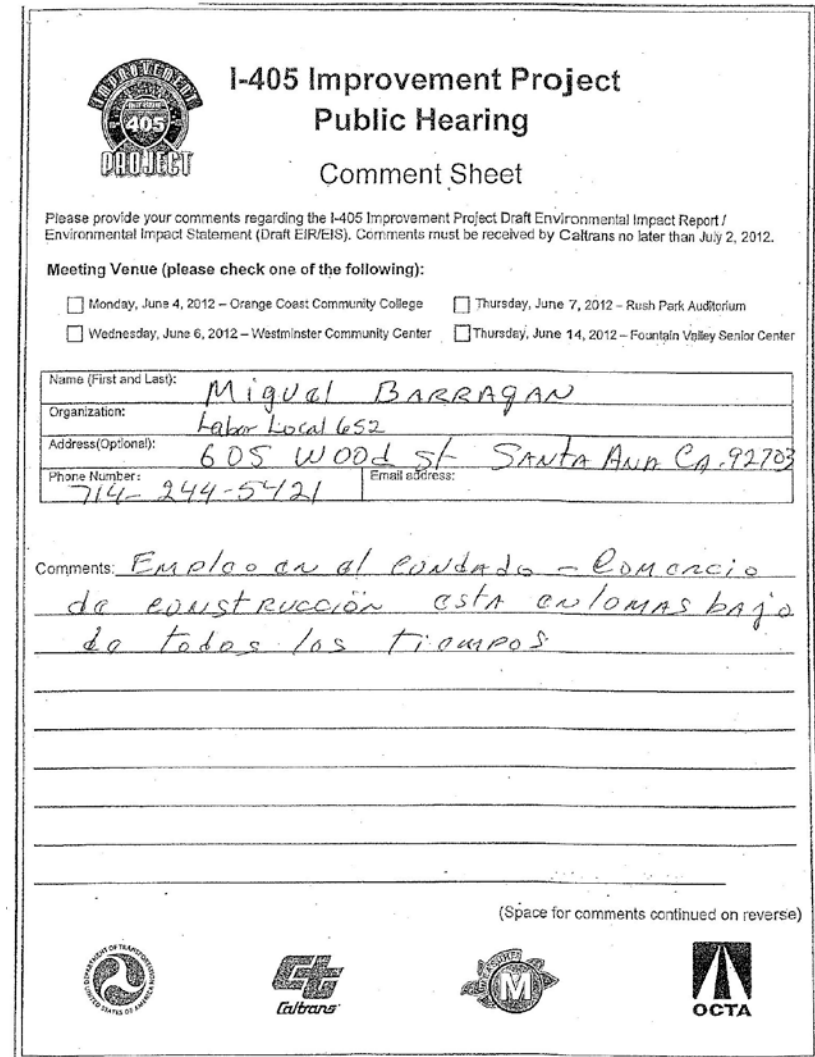 IMPROVEMENT
405
PROJECT
I-405 Improvement Project
Public Hearing
Comment Sheet
Please provide your comments regarding the I-405 Improvement Project Draft Environmental Impact Report /
Environmental Impact Statement (Draft EIR/EIS). Comments must be received by Caltrans no later than July 2, 2012.
Meeting Venue (please check one of the following):
Monday, June 4, 2012 – Orange Coast Community College Thursday, June 7, 2012 – Rush Park Auditorium
Wednesday, June 6, 2012 – Westminster Community Center Thursday, June 14, 2012 – Fountain Valley Senior Center
Name (First and Last): Miguel BARRAGAN
Organization: Labor Local 652
Address(Optional): 605 Wood St SANTA ANA CA. 92703
Phone Number: 714-244-5421 Email address:
Comments: Empleo en el condado - Comercio
de construcción esta en lo mas bajo
de todos los tiempos
(Space for comments continued on reverse)
DEPARTMENT OF TRANSPORTATION
UNITED STATES OF AMERICA
Caltrans
MEASURE
M
OCTA